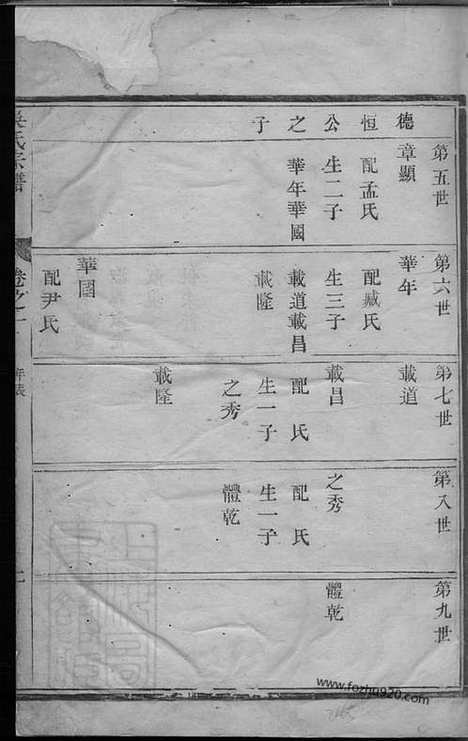 德恒公之子
第五世
章顯
配孟氏
生二子
華年華國
第六世
華年
配臧氏
生三子
載道載昌
載隆
華國
配尹氏
第七世
載道
載昌
配　氏
生一子
之秀
載隆
第八世
之秀
配　氏
生一子
體乾
第九世
體乾
吳氏宗譜
卷之一
年表
www.fozhu920.com